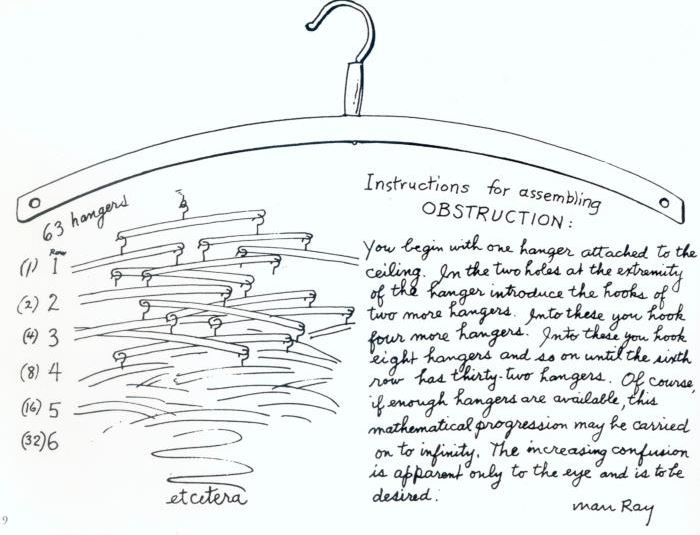 63 hangers
Row
(1) 1
(2) 2
(4) 3
(8) 4
(16) 5
(32) 6
etcetera
Instructions for assembling
OBSTRUCTION:
You begin with one hanger attached to the
ceiling. In the two holes at the extremity
of the hanger introduce the hooks of
two more hangers. Into these you hook
four more hangers. Into these you hook
eight hangers and so on until the sixth
row has thirty-two hangers. Of course,
if enough hangers are available, this
mathematical progression may be carried
on to infinity. The increasing confusion
is apparent only to the eye and is to be
desired.
Man Ray
9